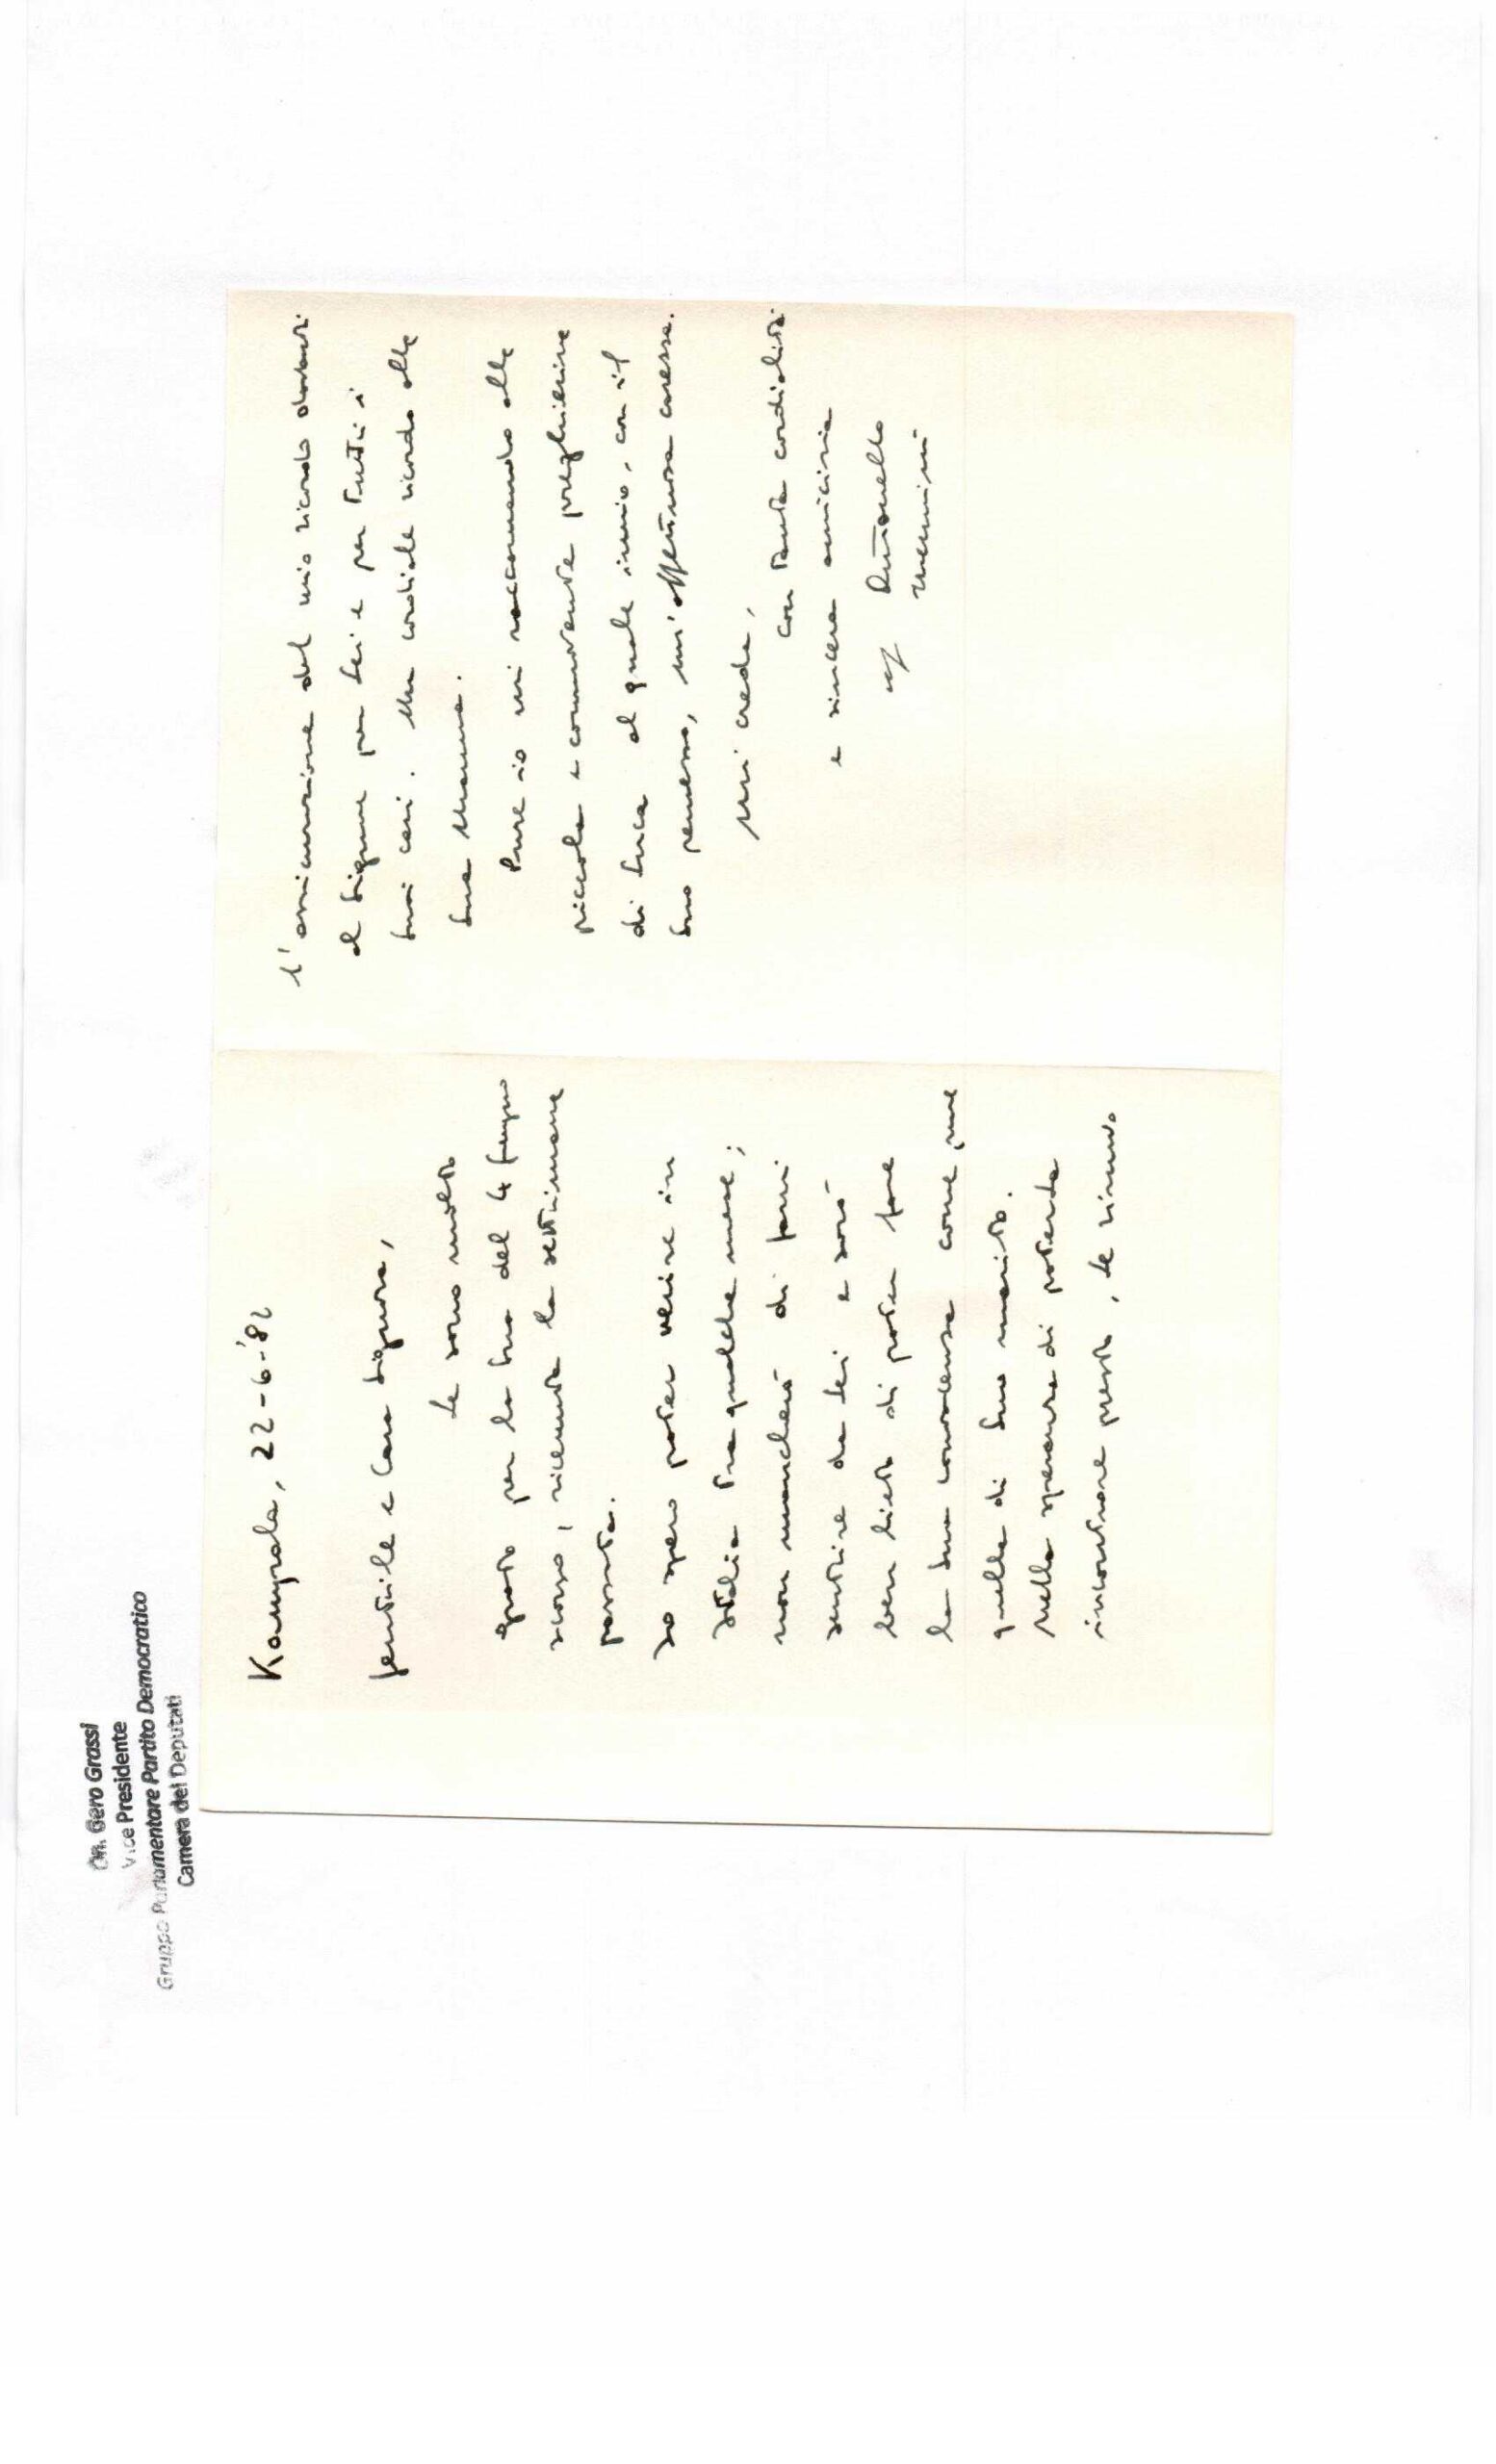 On. Gero Grassi
Vice Presidente
Gruppo Parlamentare Partito Democratico
Camera dei Deputati
Kampala, 22-6-'82
Gentile e Cara Signora,
Le sono molto
grato per la Sua del 4 giugno
scorso, ricevuta la settimana
passata.
Io spero poter venire in
Italia tra qualche mese;
non mancherò di farmi
sentire da Lei e sarò
ben lieto di poter fare
la Sua conoscenza come pure
quella di Suo marito.
Nella speranza di poterla
incontrare presto, Le rinnovo
l'assicurazione del mio ricordo davanti
al Signore per Lei e per tutti i
Suoi cari. Un cordiale ricordo alla
Sua Mamma.
Pure io mi raccomando alle
piccole e commoventi preghierine
di Luca al quale invio, con il
Suo permesso, un'affettuosa carezza.
Mi creda,
con tanta cordialità
e sincera amicizia
Antonello
Mennini